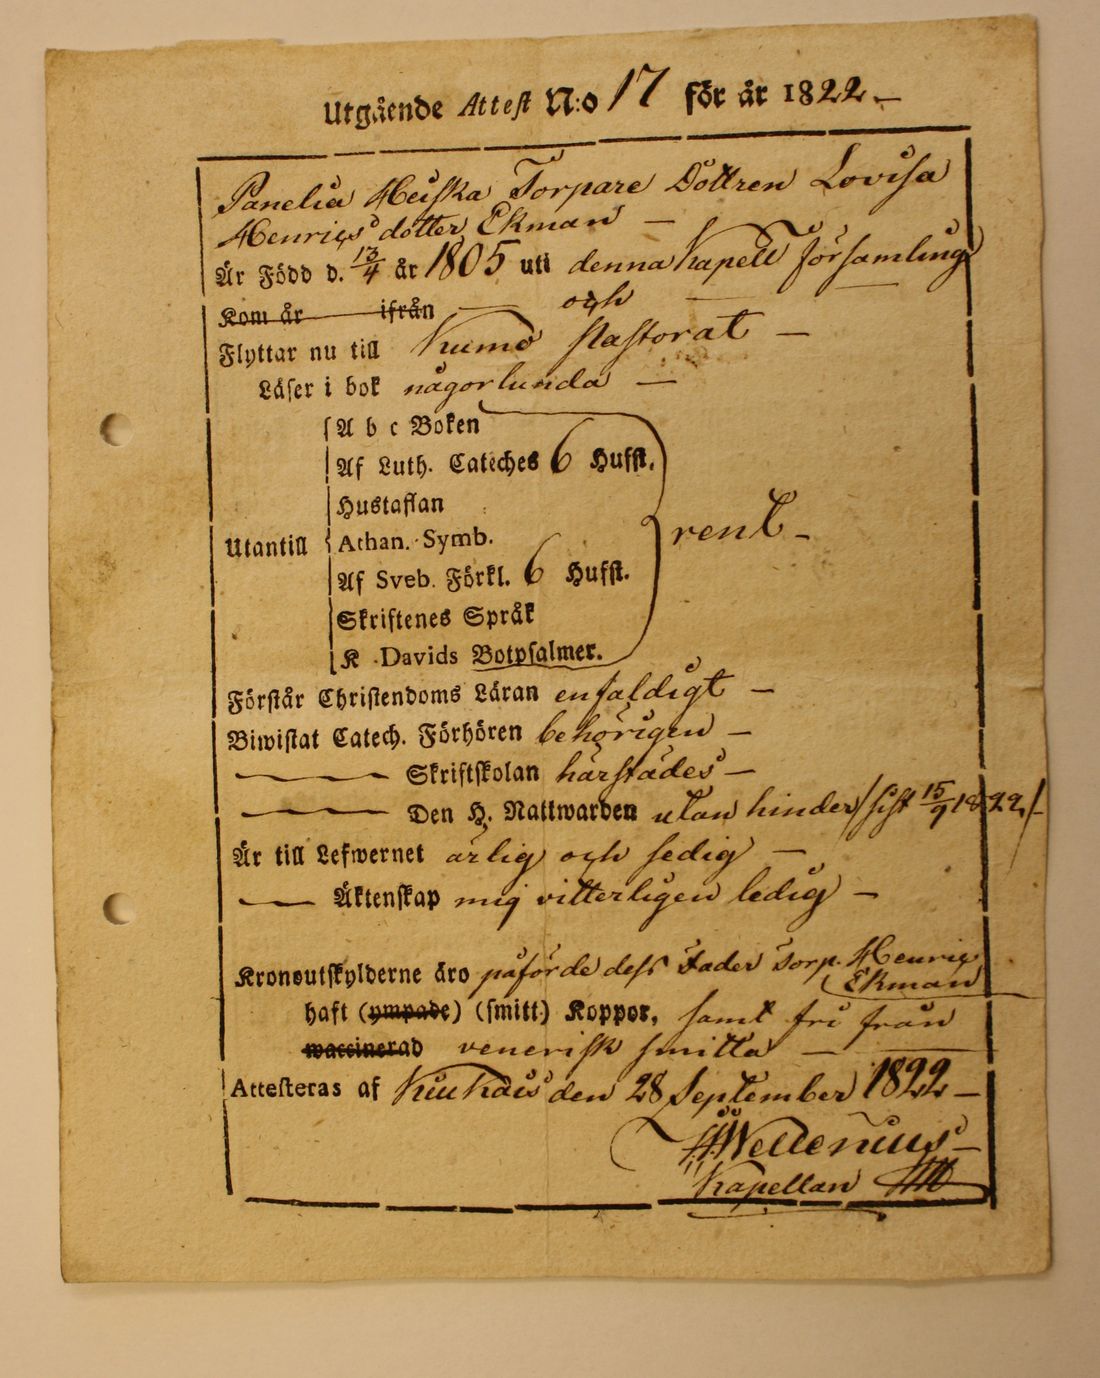 Utgående Attest N:o 17 för år 1822.
Panelia Heiska Torpare Dottren Lovisa
Henrics dotter Ekman —
Är Född d. 13/4 år 1805 uti denna Kapell församling
Kom år ifrån — och —
Flyttar nu till Kumo Pastorat —
Läser i bok någorlunda —
A b c Boken
Af Luth. Cateches 6 Hufst.
Hustaflan
Utantill Athan. Symb. rent -
Af Sveb. Förkl. 6 Hufst.
Skriftenes Språk
K Davids Botpsalmer.
Förstår Christendoms Läran enfaldigt —
Biwistat Catech. Förhören behörigen —
— Skriftskolan härstädes —
— Den H. Nattwarden utan hinder /sist 15/9 1822/-
Är till Lefwernet ärlig och sedig —
— Äktenskap mig vitterligen ledig —
Kronoutskylderne äro påförde dess Fader Torp. Henric
Ekman
haft (ympade) (smitt.) Koppor, samt fri från
waccinerad venerisk smitta —
Attesteras af Kiukais den 28 September 1822 —
Wellenius
Kapellan